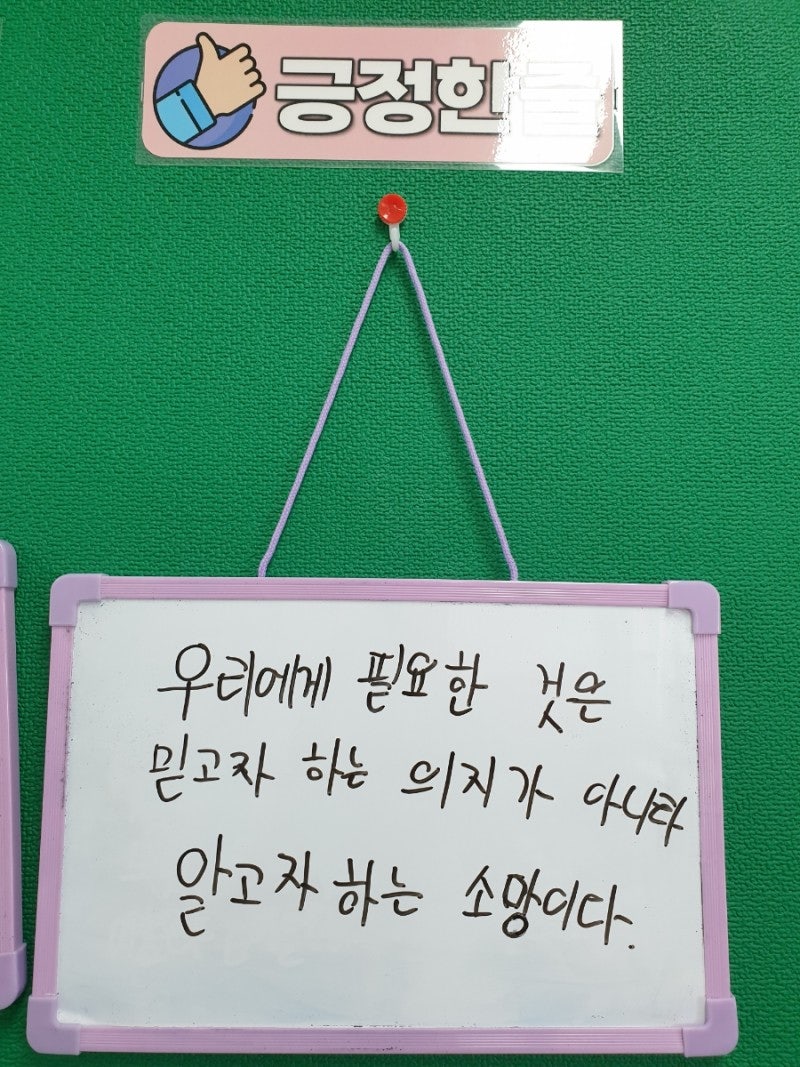 긍정한줄
우리에게 필요한 것은
믿고자 하는 의지가 아니라
알고자 하는 소망이다.